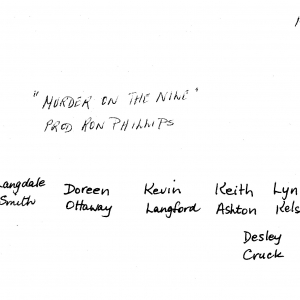 "MURDER ON THE NILE"
PROD RON PHILLIPS
Langdale Smith
Doreen Ottaway
Kevin Langford
Keith Ashton
Lyn
Desley Cruck